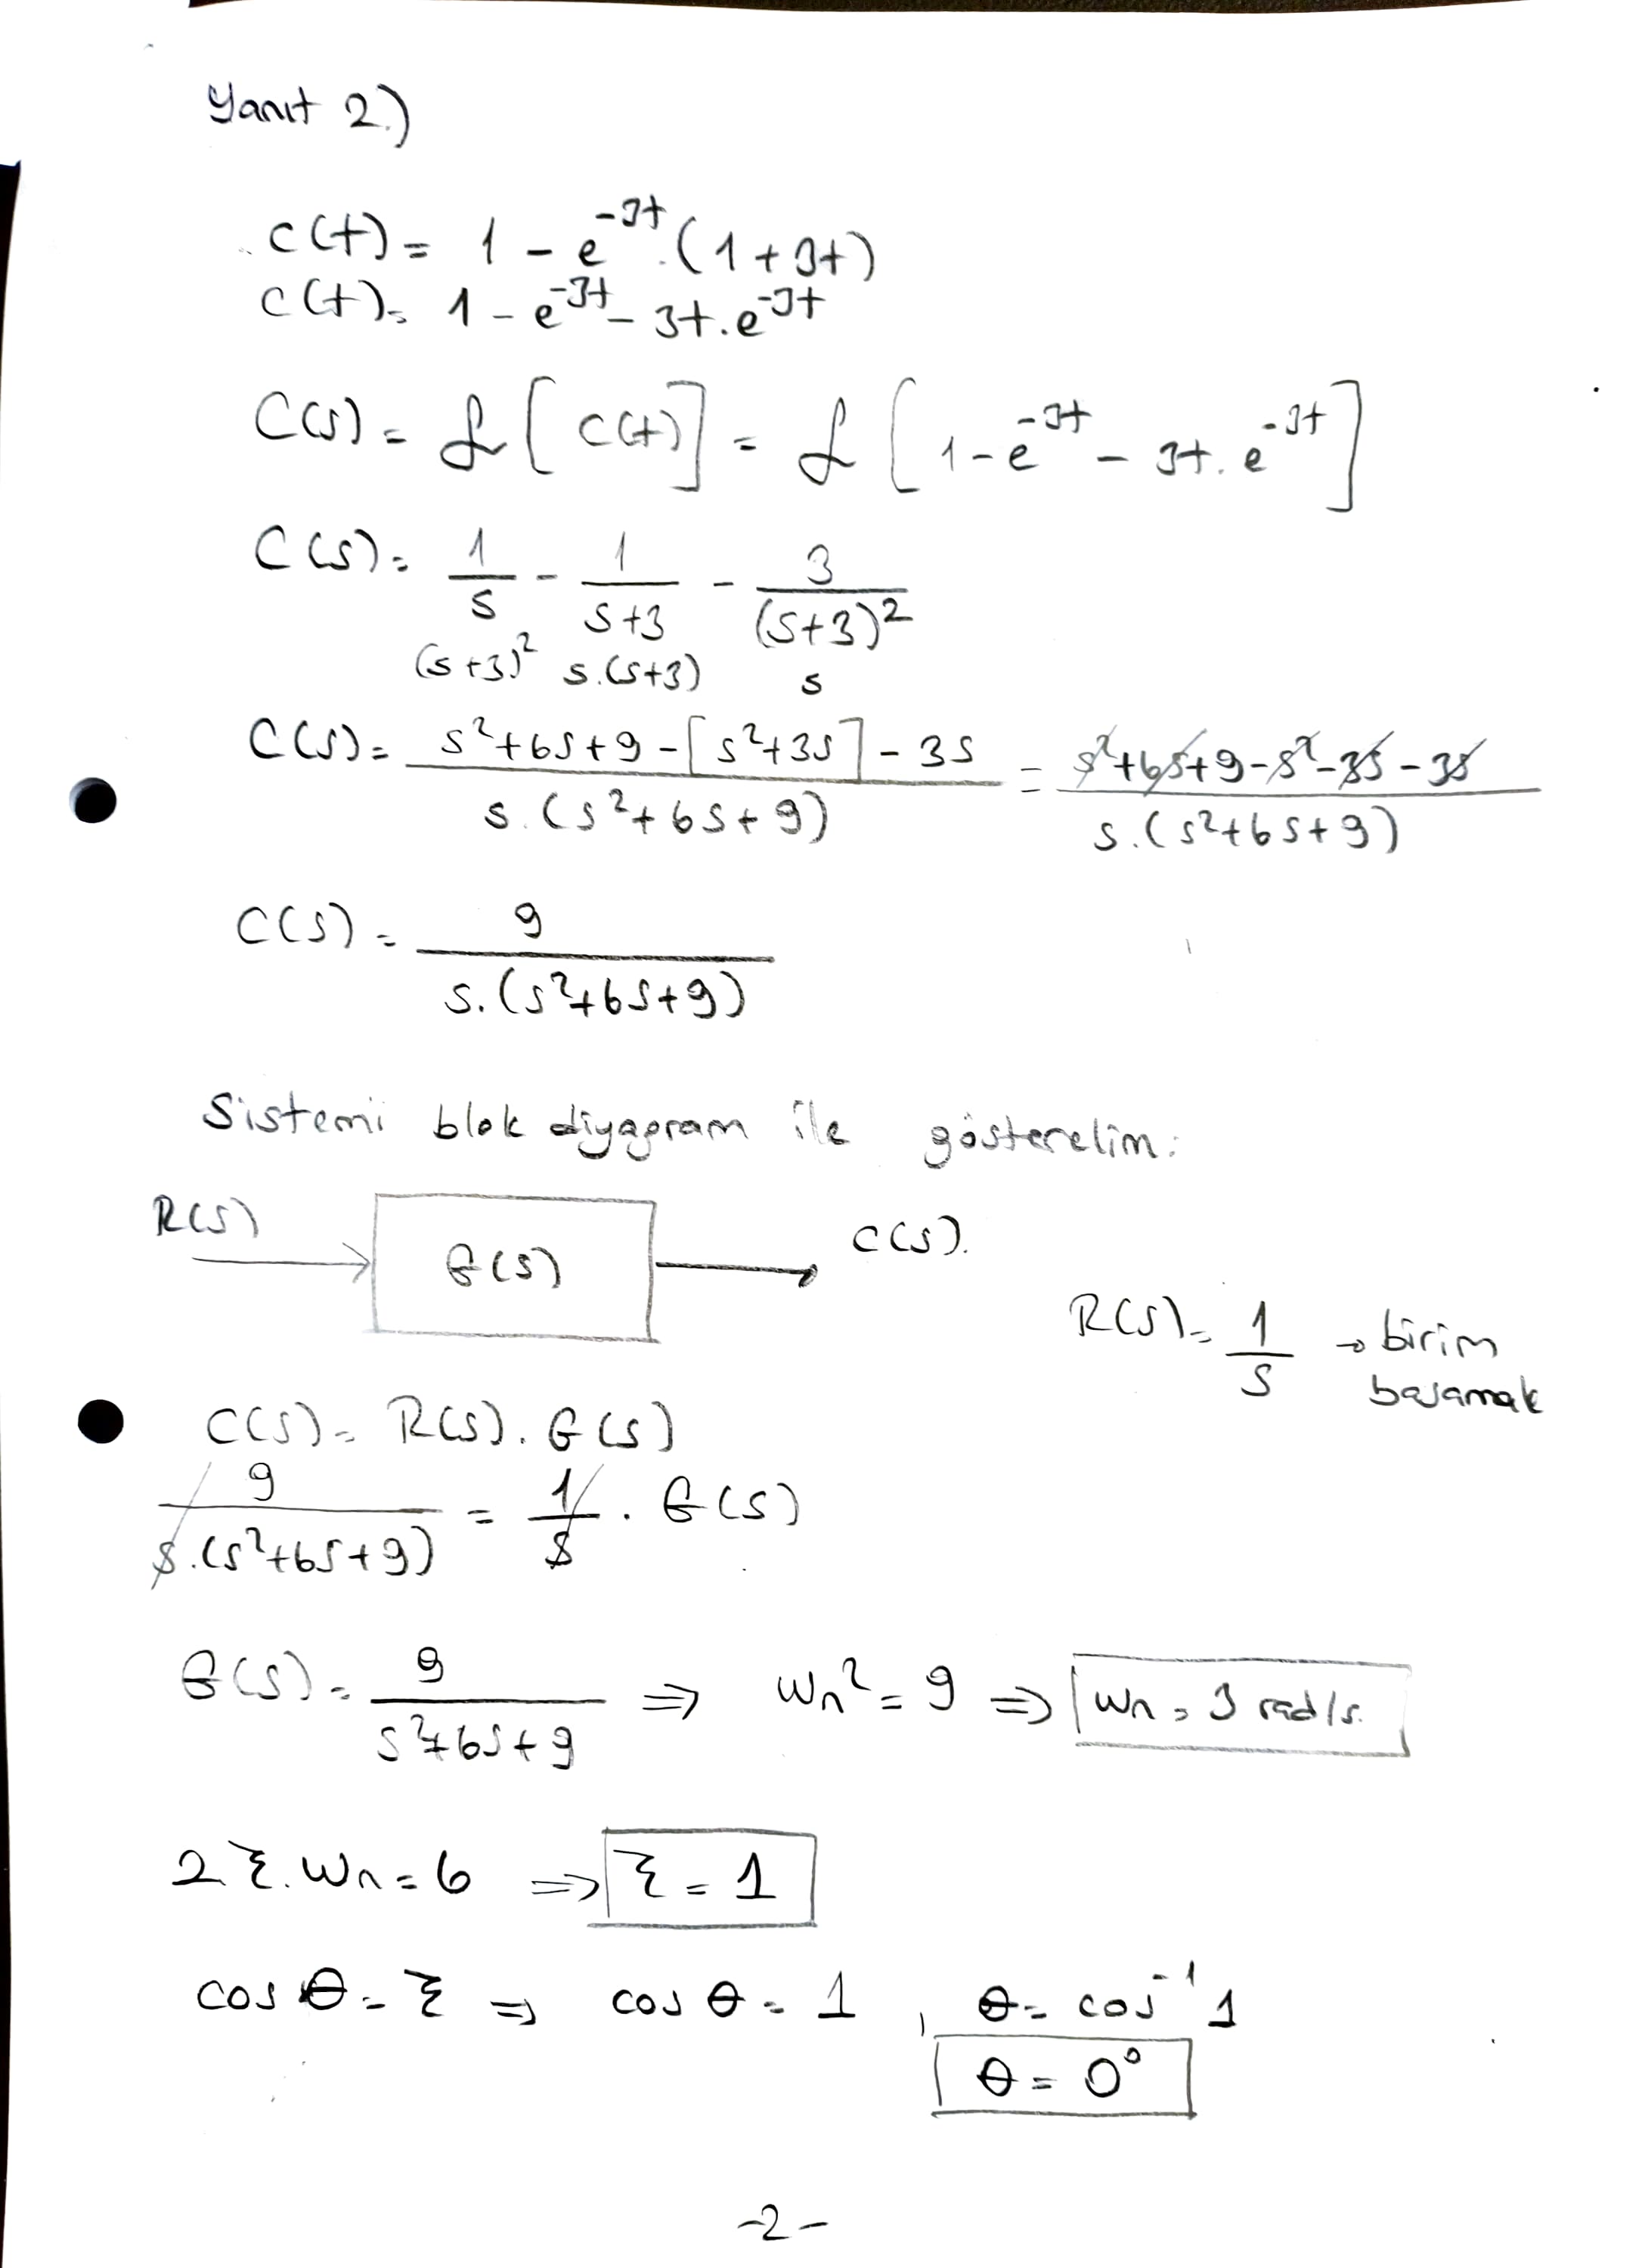 Yanıt 2.)
c(t) = 1 - e^-3t . (1+3t)
c(t) = 1 - e^-3t - 3t.e^-3t
C(s) = ℒ[c(t)] = ℒ[1-e^-3t - 3t.e^-3t]
C(s) = 1/s - 1/(s+3) - 3/(s+3)^2
(s+3)^2 s.(s+3) s
C(s) = (s^2+6s+9-[s^2+3s]-3s)/(s.(s^2+6s+9)) = (s^2+6s+9-s^2-3s-3s)/(s.(s^2+6s+9))
C(s) = 9/(s.(s^2+6s+9))
Sistemi blok diyagram ile gösterelim:
R(s) → G(s) → C(s).
R(s) = 1/s → birim
basamak
C(s) = R(s).G(s)
9/(s.(s^2+6s+9)) = 1/s . G(s)
G(s) = 9/(s^2+6s+9) ⇒ Wn^2 = 9 ⇒ Wn = 3 rad/s.
2ξ.Wn = 6 ⇒ ξ = 1
cos θ = ξ ⇒ cos θ = 1 , θ = cos^-1 1
θ = 0°
-2-